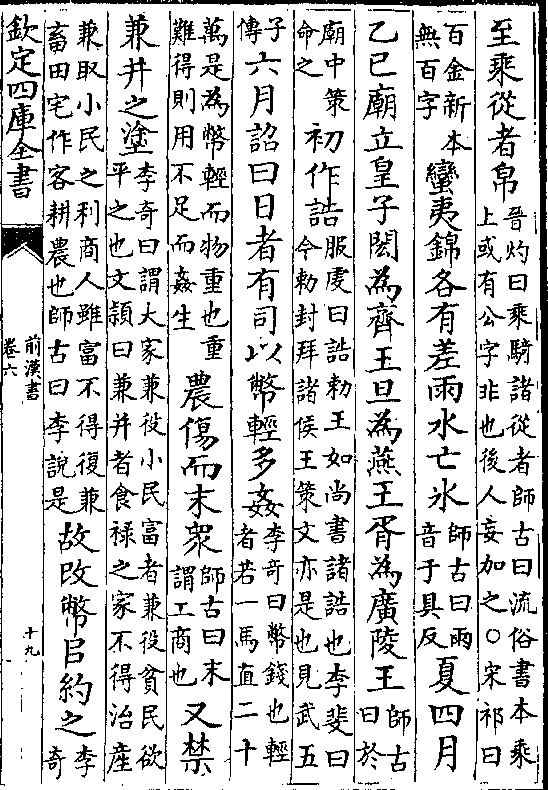 至乘從者帛晉灼曰乘騎諸從者師古曰流俗書本乘上或有公字非也後人妄加之○宋祁曰
百金新本無百字蠻夷錦各有差雨水亡氷師古曰雨音于具反夏四月
乙巳廟立皇子閎為齊王旦為燕王胥為廣陵王師古曰於
廟中策命之初作誥服虔曰誥勅王如尚書諸誥也李斐曰今勅封拜諸侯王策文亦是也見武五
子傳六月詔曰日者有司以幣輕多姦李奇曰幣錢也輕者若一馬直二十
萬是為幣輕而物重也重難得則用不足而姦生農傷而末衆師古曰末謂工商也又禁
兼并之塗李奇曰謂大家兼役小民富者兼役貧民欲平之也文頴曰兼并者食禄之家不得治産
兼取小民之利商人雖富不得復兼畜田宅作客耕農也師古曰李說是故改幣㠯約之李奇
欽定四庫全書
前漢書
卷六
十九